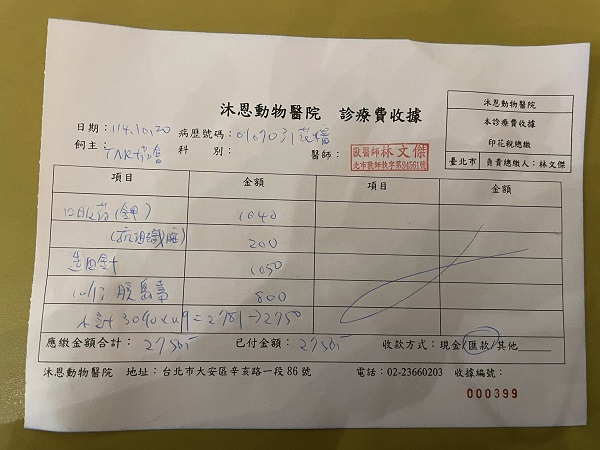 沐恩動物醫院 診療費收據
沐恩動物醫院
本診療費收據
印花稅總繳
臺北市 負責總繳人：林文傑
日期：114.10.20 病歷號碼：
飼主： 科別： 醫師： 獸醫師林文傑
北市獸醫師執字第94561號
項目 金額 項目 金額
口服藥(鉀) 1040
200
造血針 1050
10/17 胰島素 800
應繳金額合計： 已付金額： 收款方式：現金/匯款/其他
沐恩動物醫院 地址：台北市大安區辛亥路一段86號 電話：02-23660203 收據編號：
000399